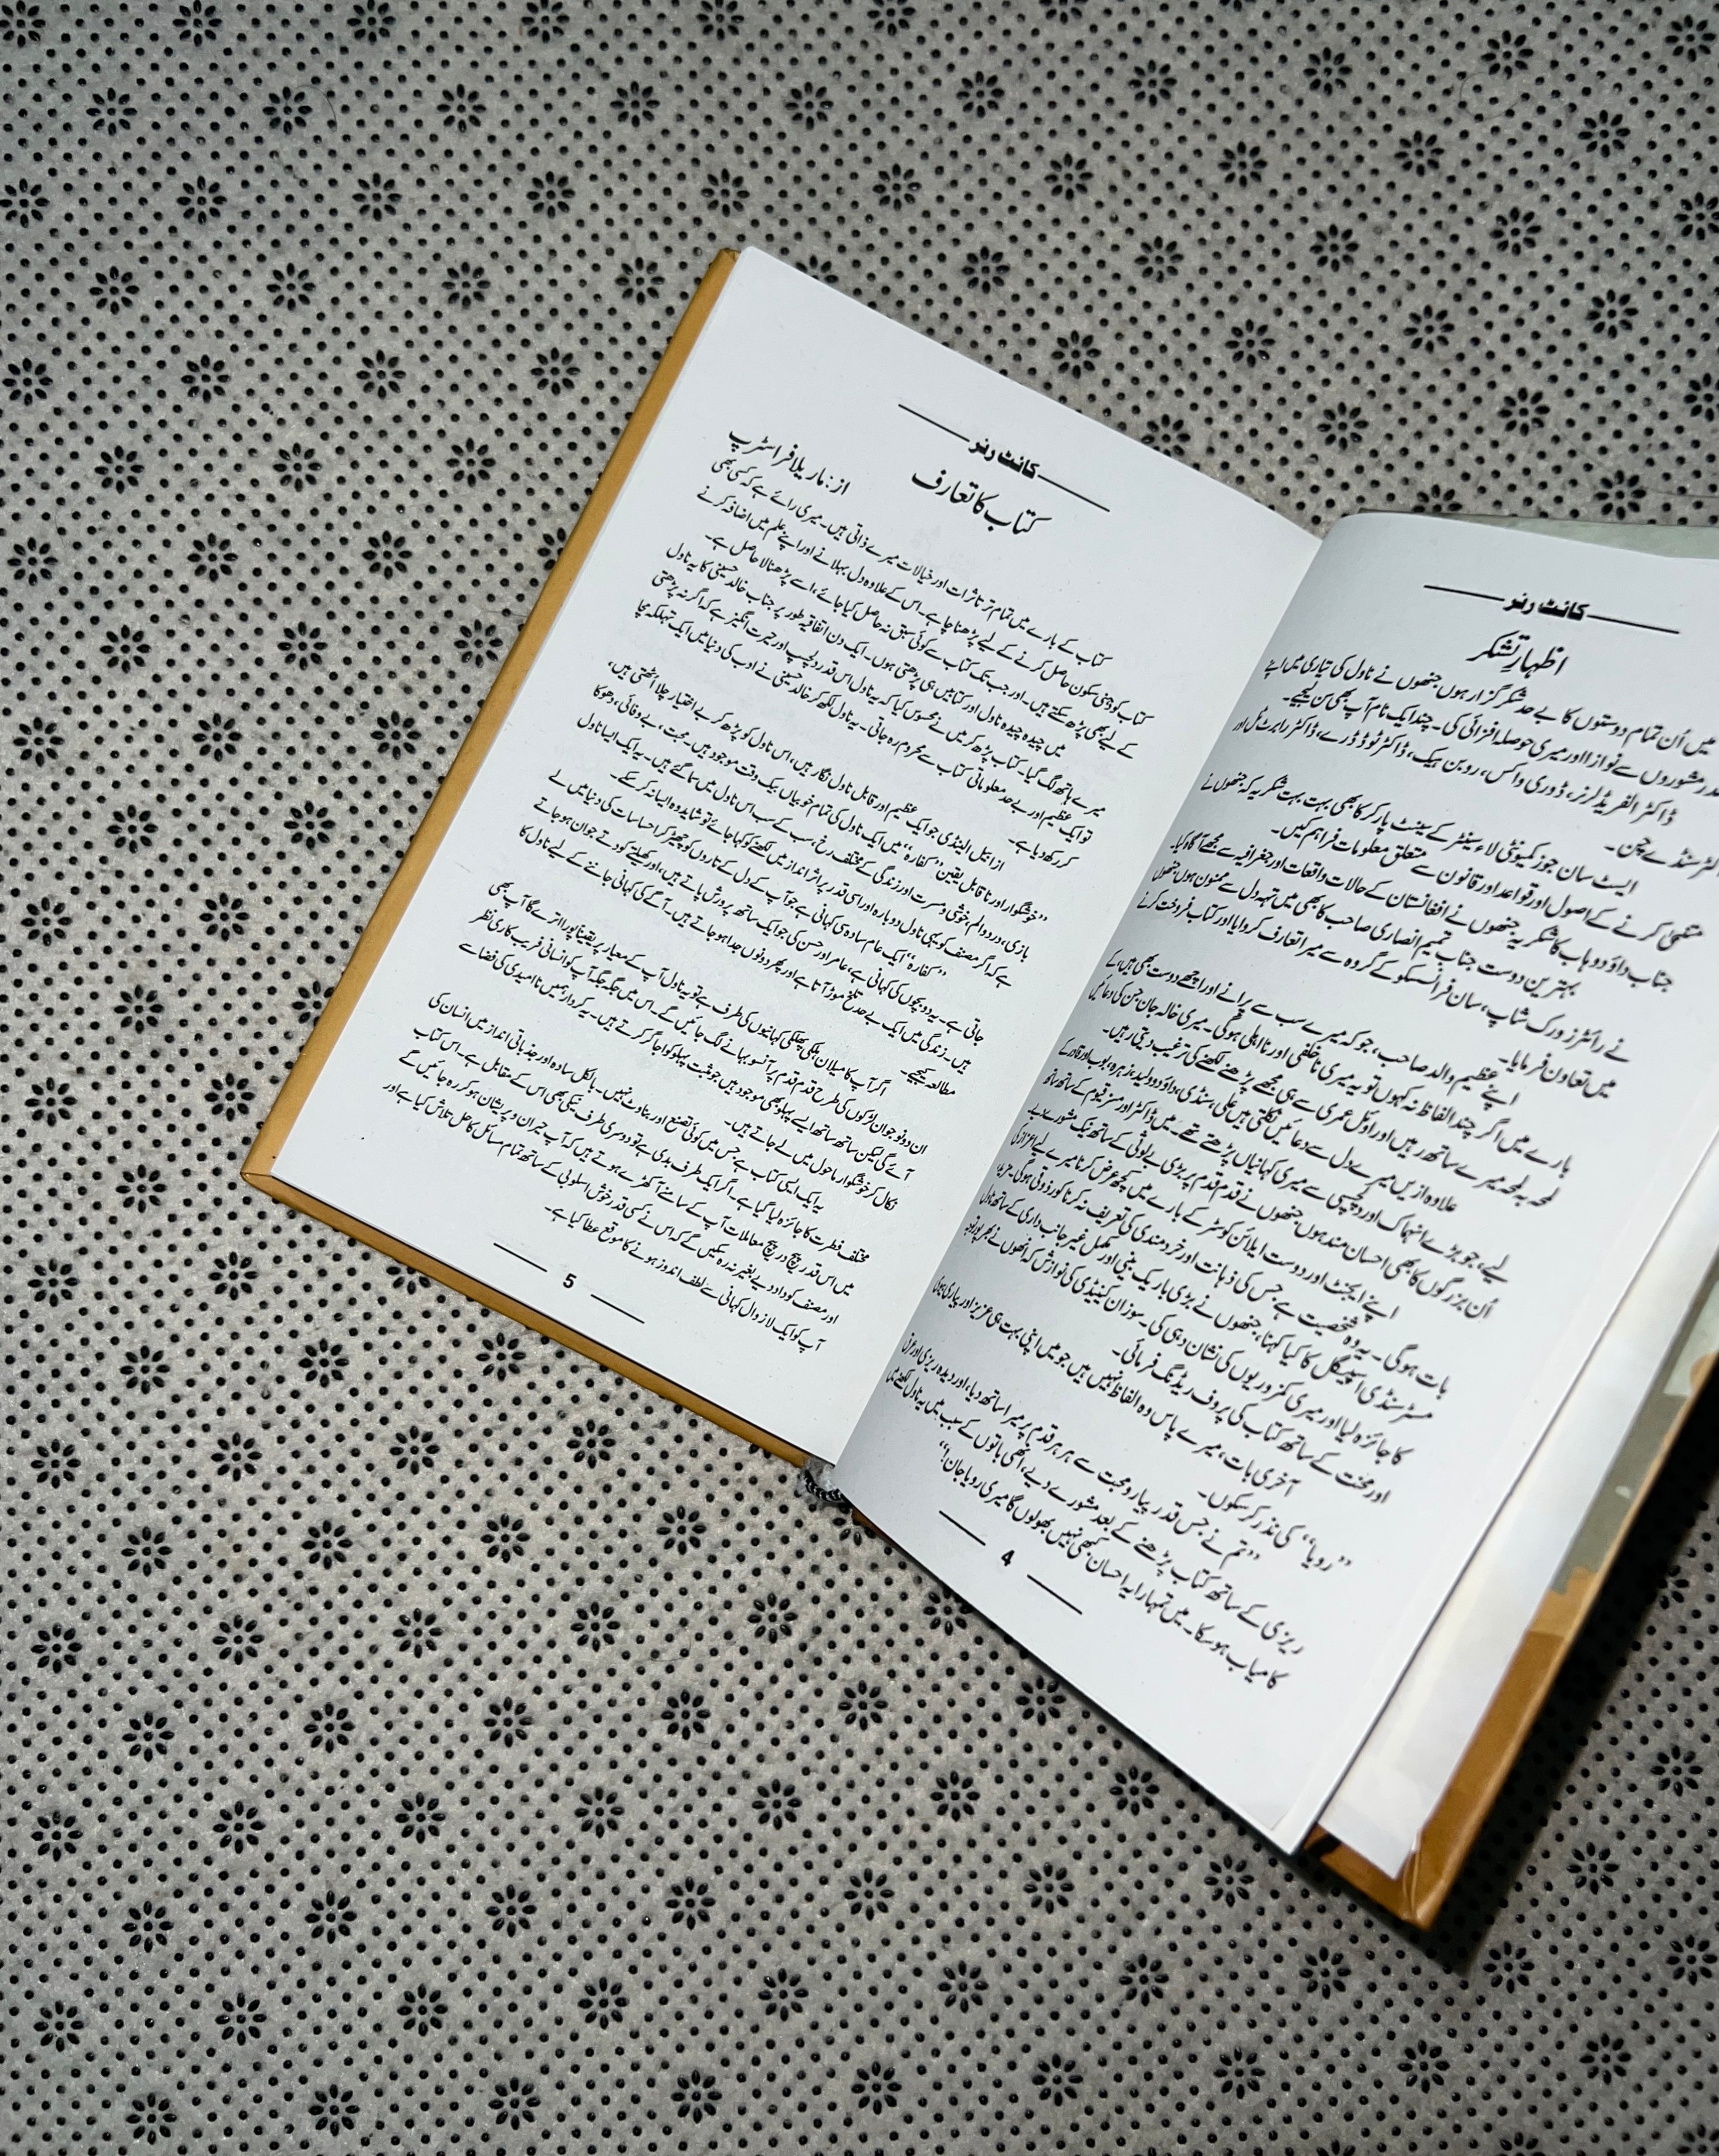 کائٹ رنر
اظہارِ تشکر
میں اُن تمام دوستوں کا بے حد شکر گزار ہوں، جنھوں نے ناول کی تیاری میں اپنے
قدر مشوروں سے نوازا اور میری حوصلہ افزائی کی۔ چند ایک نام آپ بھی سن لیجیے۔
ڈاکٹر الفریڈ لرنر، ڈوری واکس، روبن ہیک، ڈاکٹر ٹوڈ ڈرے، ڈاکٹر رابرٹ ٹل اور
سنڈے چن۔
ایسٹ سان جوز کمیونٹی لاء سینٹر کے سینٹ پارکر کا بھی بہت بہت شکریہ کہ جنھوں نے
کرنے کے اصول اور قواعد اور قانون سے متعلق معلومات فراہم کیں۔
جناب داؤد وہاب کا شکریہ جنھوں نے افغانستان کے حالات واقعات اور جغرافیہ سے مجھے آگاہ کیا۔
بہترین دوست جناب تمیم انصاری صاحب کا بھی میں تہہ دل سے ممنون ہوں، جنھوں
نے رائٹرز ورک شاپ، سان فرانسسکو کے گروہ سے میرا تعارف کروایا اور کتاب فروخت کرنے
میں تعاون فرمایا۔
اپنے عظیم والد صاحب، جو کہ میرے سب سے پرانے اور اچھے دوست بھی ہیں، کے
بارے میں اگر چند الفاظ نہ کہوں تو یہ میری ناخلفی اور نااہلی ہوگی۔ میری خالہ جان جن کی دعائیں
لمحہ بہ لمحہ میرے ساتھ رہیں اور اوائل عمری سے ہی مجھے پڑھنے لکھنے کی ترغیب دیتی رہیں۔
علاوہ ازیں میرے دل سے دعائیں نکلتی ہیں علی، سنڈی، داؤد، ولید، زہرہ، بوب اور قادر کے
لیے، جو بڑے انہماک اور دلچسپی سے میری کہانیاں پڑھتے تھے۔ میں ڈاکٹر اور مسز قیوم کے ساتھ ساتھ
اُن بزرگوں کا بھی احسان مند ہوں، جنھوں نے قدم قدم پر بڑی بے لوثی کے ساتھ نیک مشورے دیے
اپنے ایجنٹ اور دوست ایلائن کوسٹر کے بارے میں کچھ عرض کرنا میرے لیے اعزاز کی
بات ہوگی۔ یہ وہ شخصیت ہے جس کی ذہانت اور خرد مندی کی تعریف نہ کرنا کور ذوقی ہوگی۔
مسٹر سنڈی اسپیگل کا کیا کہنا، جنھوں نے بڑی باریک بینی اور مکمل غیر جانب داری کے ساتھ ناول
کا جائزہ لیا اور میری کمزوریوں کی نشان دہی کی۔ سوزان کینیڈی کی نوازش کہ انھوں نے بھرپور توجہ
اور محنت کے ساتھ کتاب کی پروف ریڈنگ فرمائی۔
آخری بات، میرے پاس وہ الفاظ نہیں ہیں جو میں اپنی بہت ہی عزیز اور پیاری بیوی
”رویا“ کی نذر کر سکوں۔
”تم نے جس قدر پیار و محبت سے ہر ہر قدم پر میرا ساتھ دیا، اور دیدہ ریزی اور عرق
ریزی کے ساتھ کتاب پڑھنے کے بعد مشورے دیے، انھی باتوں کے سبب میں یہ ناول لکھنے میں
کامیاب ہو سکا۔ میں تمہارا یہ احسان کبھی نہیں بھولوں گا میری رویا جان!“
4
کائٹ رنر
کتاب کا تعارف
از: ماریلا فراسٹرپ
کتاب کے بارے میں تمام تر تاثرات اور خیالات میرے ذاتی ہیں۔ میری رائے ہے کہ کسی بھی
کتاب کو ذہنی سکون حاصل کرنے کے لیے پڑھنا چاہیے۔ اس کے علاوہ دل بہلانے اور اپنے علم میں اضافہ کرنے
کے لیے بھی پڑھ سکتے ہیں۔ اور جب تک کتاب سے کوئی سبق نہ حاصل کیا جائے، اسے پڑھنا لا حاصل ہے۔
میں چیدہ چیدہ ناول اور کتابیں ہی پڑھتی ہوں۔ ایک دن اتفاقیہ طور پر جناب خالد حسینی کا یہ ناول
میرے ہاتھ لگ گیا۔ کتاب پڑھ کر میں نے محسوس کیا کہ یہ ناول اس قدر دلچسپ اور حیرت انگیز ہے کہ اگر نہ پڑھتی
تو ایک عظیم اور بے حد معلوماتی کتاب سے محروم رہ جاتی۔ یہ ناول لکھ کر خالد حسینی نے ادب کی دنیا میں ایک تہلکہ مچا
کر رکھ دیا ہے۔
ازابیل الینڈی جو ایک عظیم اور قابل ناول نگار ہیں، اس ناول کو پڑھ کر بے اختیار چلا اٹھتی ہیں،
”خوشگوار اور ناقابل یقین“ ”کفارہ“ میں ایک ناول کی تمام خوبیاں بیک وقت موجود ہیں۔ محبت، بے وفائی، دھوکا
بازی، درد و الم، خوشی و مسرت اور زندگی کے مختلف رخ، سب کے سب اس ناول میں سما گئے ہیں۔ یہ ایک ایسا ناول
ہے کہ اگر مصنف کو یہی ناول دوبارہ اور اسی قدر پر اثر انداز میں لکھنے کو کہا جائے تو شاید وہ ایسا نہ کر سکے۔
”کفارہ“ ایک عام سادہ سی کہانی ہے جو آپ کے دل کے تاروں کو چھیڑ کر احساسات کی دنیا میں لے
جاتی ہے۔ یہ دو بچوں کی کہانی ہے، عامر اور حسن کی جو ایک ساتھ پرورش پاتے ہیں، اور کھیلتے کودتے جوان ہو جاتے
ہیں۔ زندگی میں ایک بے حد تلخ موڑ آتا ہے اور پھر دونوں جدا ہو جاتے ہیں۔ آگے کی کہانی جاننے کے لیے ناول کا
مطالعہ کیجیے۔
اگر آپ کا میلان ہلکی پھلکی کہانیوں کی طرف ہے تو یہ ناول آپ کے معیار پر یقیناً پورا اترے گا آپ بھی
ان دو نوجوان لڑکوں کی طرح قدم قدم پر آنسو بہانے لگ جائیں گے۔ اس میں جگہ جگہ آپ کو انسانی فریب کاری نظر
آئے گی لیکن ساتھ ساتھ ایسے پہلو بھی موجود ہیں جو مثبت پہلو کو اجاگر کرتے ہیں۔ یہ کردار ہمیں نا امیدی کی فضا سے
نکال کر خوشگوار ماحول میں لے جاتے ہیں۔
یہ ایک ایسی کتاب ہے جس میں کوئی تصنع اور بناوٹ نہیں۔ بالکل سادہ اور جذباتی انداز میں انسان کی
مختلف فطرت کا جائزہ لیا گیا ہے۔ اگر ایک طرف بدی ہے تو دوسری طرف نیکی بھی اس کے مقابل ہے۔ اس کتاب
میں اس قدر پیچ در پیچ معاملات آپ کے سامنے آ کھڑے ہوتے ہیں کہ آپ حیران و پریشان ہو کر رہ جائیں گے
اور مصنف کو داد دیے بغیر نہ رہ سکیں گے کہ اس نے کس قدر خوش اسلوبی کے ساتھ تمام مسائل کا حل تلاش کیا ہے اور
آپ کو ایک لازوال کہانی سے لطف اندوز ہونے کا موقع عطا کیا ہے۔
5